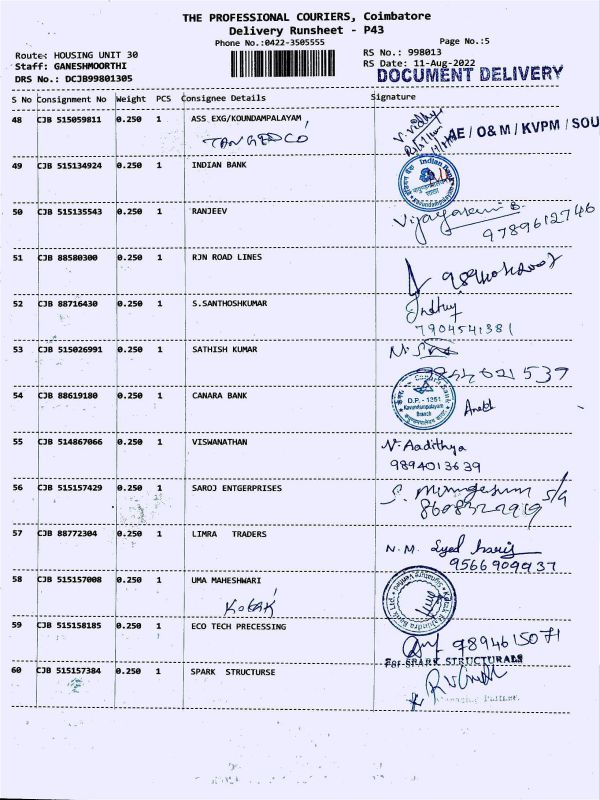 THE PROFESSIONAL COURIERS, Coimbatore
Delivery Runsheet - P43
Phone No.:0422-3505555
Page No.:5
Route: HOUSING UNIT 30
RS No.: 998013
Staff: GANESHMOORTHI
RS Date: 11-Aug-2022
DRS No.: DCJB99801305
DOCUMENT DELIVERY
S No Consignment No Weight PCS Consignee Details Signature
48 CJB 515059811 0.250 1 ASS EXG/KOUNDAMPALAYAM,
TANGEDCO
AE / O& M / KVPM / SOU
49 CJB 515134924 0.250 1 INDIAN BANK
Indian Bank
50 CJB 515135543 0.250 1 RANJEEV
Vijayarani B.
9789612746
51 CJB 88580300 0.250 1 RJN ROAD LINES
52 CJB 88716430 0.250 1 S.SANTHOSHKUMAR
7904541381
53 CJB 515026991 0.250 1 SATHISH KUMAR
54 CJB 88619180 0.250 1 CANARA BANK
Canara Bank
D.P. - 1251
Kavundampalayam
Branch
55 CJB 514867066 0.250 1 VISWANATHAN
N. Aadithya
9894013639
56 CJB 515157429 0.250 1 SAROJ ENTGERPRISES
S. Murugesan
57 CJB 88772304 0.250 1 LIMRA TRADERS
N.M. Syed haris
9566909937
58 CJB 515157008 0.250 1 UMA MAHESHWARI
Kotak
59 CJB 515158185 0.250 1 ECO TECH PRECESSING
9894615071
For SPARK STRUCTURALS
60 CJB 515157384 0.250 1 SPARK STRUCTURSE
Managing Partner